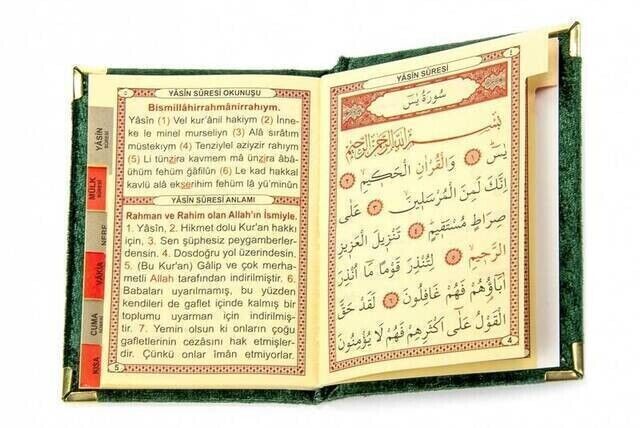 YÂSİN SÛRESİ OKUNUŞU
Bismillâhirrahmânirrahıym.
Yâsîn (1) Vel kur'ânil hakiym (2) İnne-
ke le minel murseliyn (3) Alâ sırâtım
müstekıym (4) Tenziylel aziyzir rahıym
(5) Li tünzira kavmem mâ ünzira âbâ-
ühüm fehüm ğâfilûn (6) Le kad hakkal
kavlü alâ ekserihim fehüm lâ yü'minûn
YÂSİN SÛRESİ ANLAMI
Rahman ve Rahim olan Allah'ın İsmiyle.
1. Yâsîn, 2. Hikmet dolu Kur'an hakkı
için, 3. Sen şüphesiz peygamberler-
densin. 4. Dosdoğru yol üzerindesin.
5. (Bu Kur'an) Gâlip ve çok merha-
metli Allah tarafından indirilmiştir. 6.
Babaları uyarılmamış, bu yüzden
kendileri de gaflet içinde kalmış bir
toplumu uyarman için indirilmiş-
tir. 7. Yemin olsun ki onların çoğu
gafletlerinin cezasını hak etmişler-
dir. Çünkü onlar îman etmiyorlar.
5
YÂSİN SÛRESİ
MÜLK SÛRESİ
NEBE
VAKIA
CUMA
KISA
YÂSİN SÛRESİ
سُورَةُ يٰسٓ
بِسْمِ اللّٰهِ الرَّحْمٰنِ الرَّحِيمِ
يٰسٓ ﴿١﴾ وَالْقُرْاٰنِ الْحَكِيمِ ﴿٢﴾
اِنَّكَ لَمِنَ الْمُرْسَلِينَ ﴿٣﴾ عَلٰى
صِرَاطٍ مُسْتَقِيمٍ ﴿٤﴾ تَنْزِيلَ الْعَزِيزِ
الرَّحِيمِ ﴿٥﴾ لِتُنْذِرَ قَوْمًا مَٓا اُنْذِرَ
اٰبَٓاؤُ۬هُمْ فَهُمْ غَافِلُونَ ﴿٦﴾ لَقَدْ حَقَّ
الْقَوْلُ عَلٰٓى اَكْثَرِهِمْ فَهُمْ لَا يُؤْمِنُونَ
4